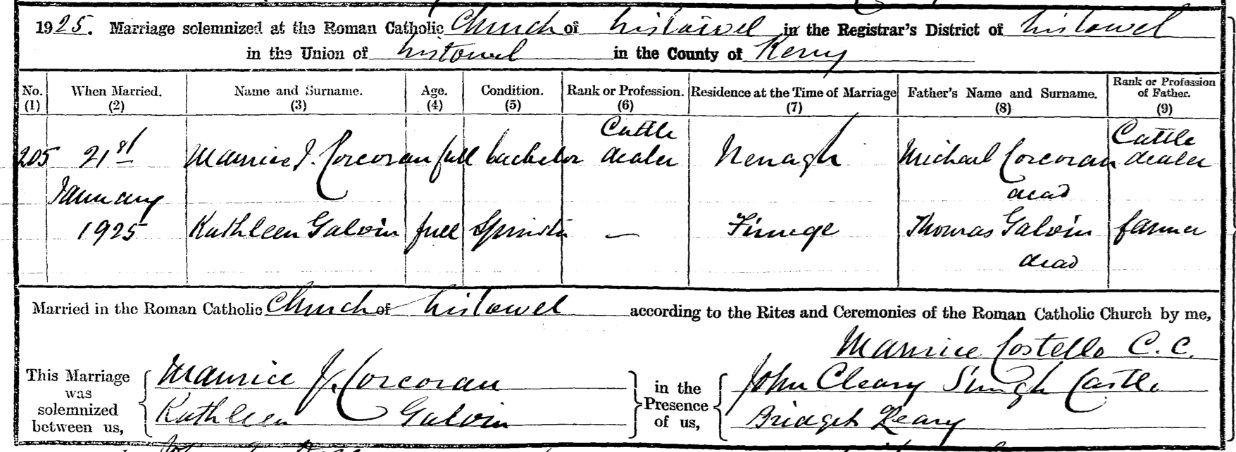 1925. Marriage solemnized at the Roman Catholic Church of Listowel in the Registrar's District of Listowel
in the Union of Listowel in the County of Kerry
No. (1) When Married. (2) Name and Surname. (3) Age. (4) Condition. (5) Rank or Profession. (6) Residence at the Time of Marriage (7) Father's Name and Surname. (8) Rank or Profession of Father. (9)
205 21st Maurice J. Corcoran full bachelor Cattle dealer Nenagh Michael Corcoran Cattle dealer
January dead
1925 Kathleen Galvin full Spinster — Finuge Thomas Galvin farmer
dead
Married in the Roman Catholic Church of Listowel according to the Rites and Ceremonies of the Roman Catholic Church by me,
Maurice Costello C.C.
This Marriage was solemnized between us, Maurice J. Corcoran
Kathleen Galvin
in the Presence of us, John Cleary Castle
Bridget Leary